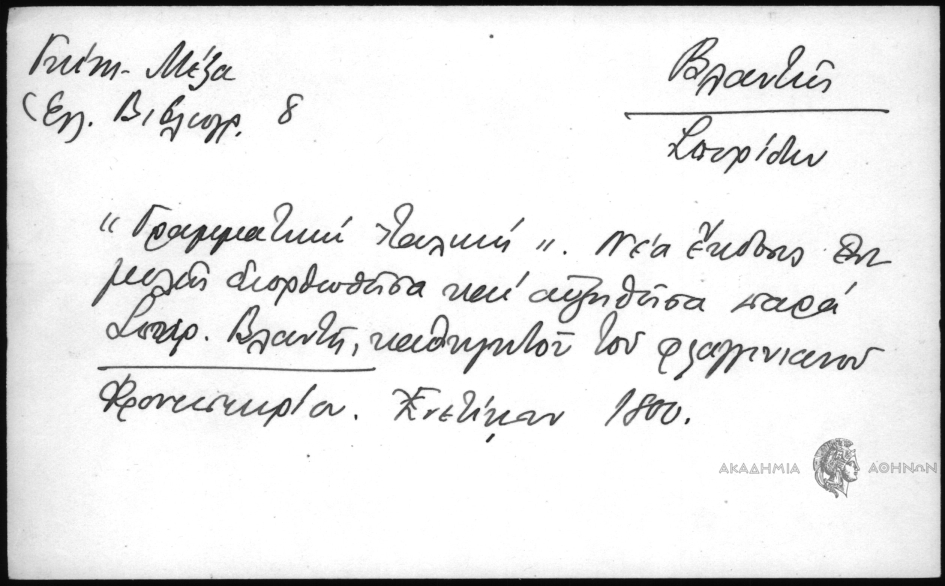 Γκίνη - Μέξα
(Ελλ. Βιβλιογρ. 8
Βλαντής
Σπυρίδων
"Γραμματική Ιταλική". Νέα ἔκδοσις ἐπι
μελῶς διορθωθεῖσα καί αὐξηθεῖσα παρά
Σπυρ. Βλαντῆ, καθηγητοῦ τοῦ φλαγγινιανοῦ
Φροντιστηρίου. Ἐνετίῃσιν 1800.
ΑΚΑΔΗΜΙΑ ΑΘΗΝΩΝ